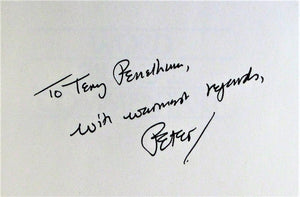 To Terry Penelhum,
with warmest regards,
Peter